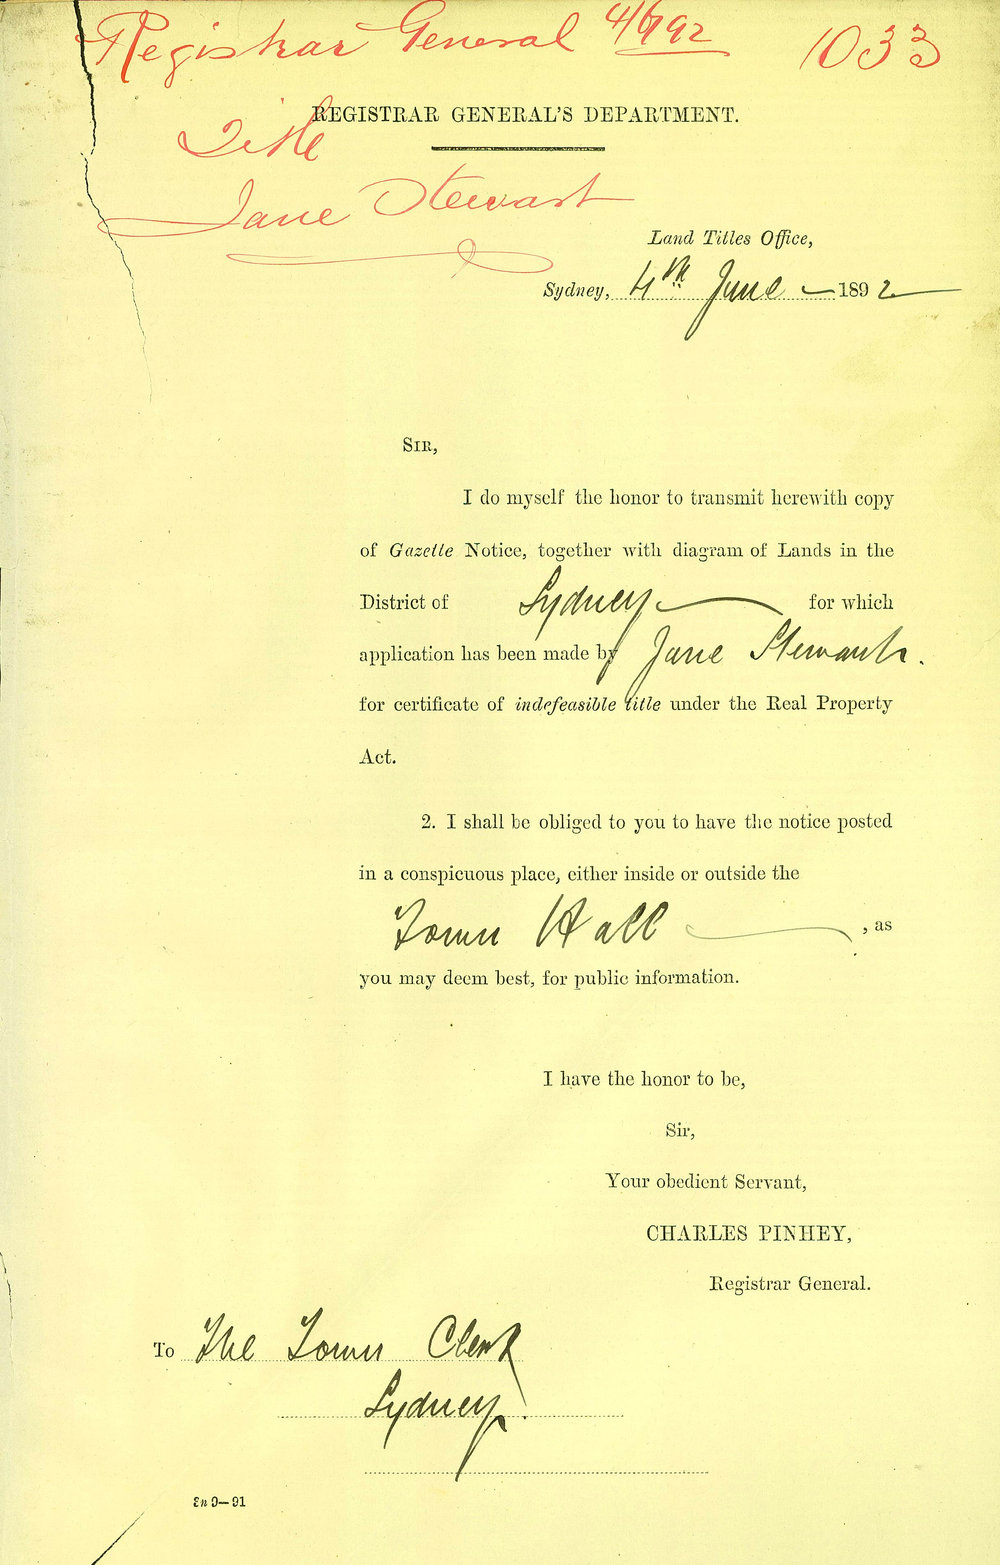 Registrar General 4/6/92 1033
REGISTRAR GENERAL'S DEPARTMENT.
Title
Jane Stewart
Land Titles Office,
Sydney, 4th June 1892
SIR,
I do myself the honor to transmit herewith copy
of Gazette Notice, together with diagram of Lands in the
District of Sydney for which
application has been made by Jane Stewart.
for certificate of indefeasible title under the Real Property
Act.
2. I shall be obliged to you to have the notice posted
in a conspicuous place, either inside or outside the
Town Hall, as
you may deem best, for public information.
I have the honor to be,
Sir,
Your obedient Servant,
CHARLES PINHEY,
Registrar General.
To The Town Clerk
Sydney.
9—91